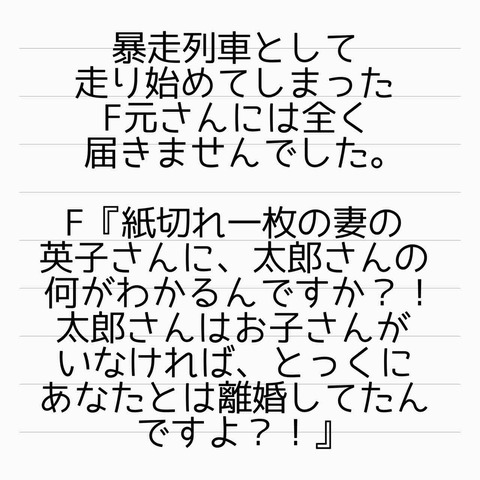 暴走列車として
走り始めてしまった
F元さんには全く
届きませんでした。
F『紙切れ一枚の妻の
英子さんに、太郎さんの
何がわかるんですか？！
太郎さんはお子さんが
いなければ、とっくに
あなたとは離婚してたん
ですよ？！』